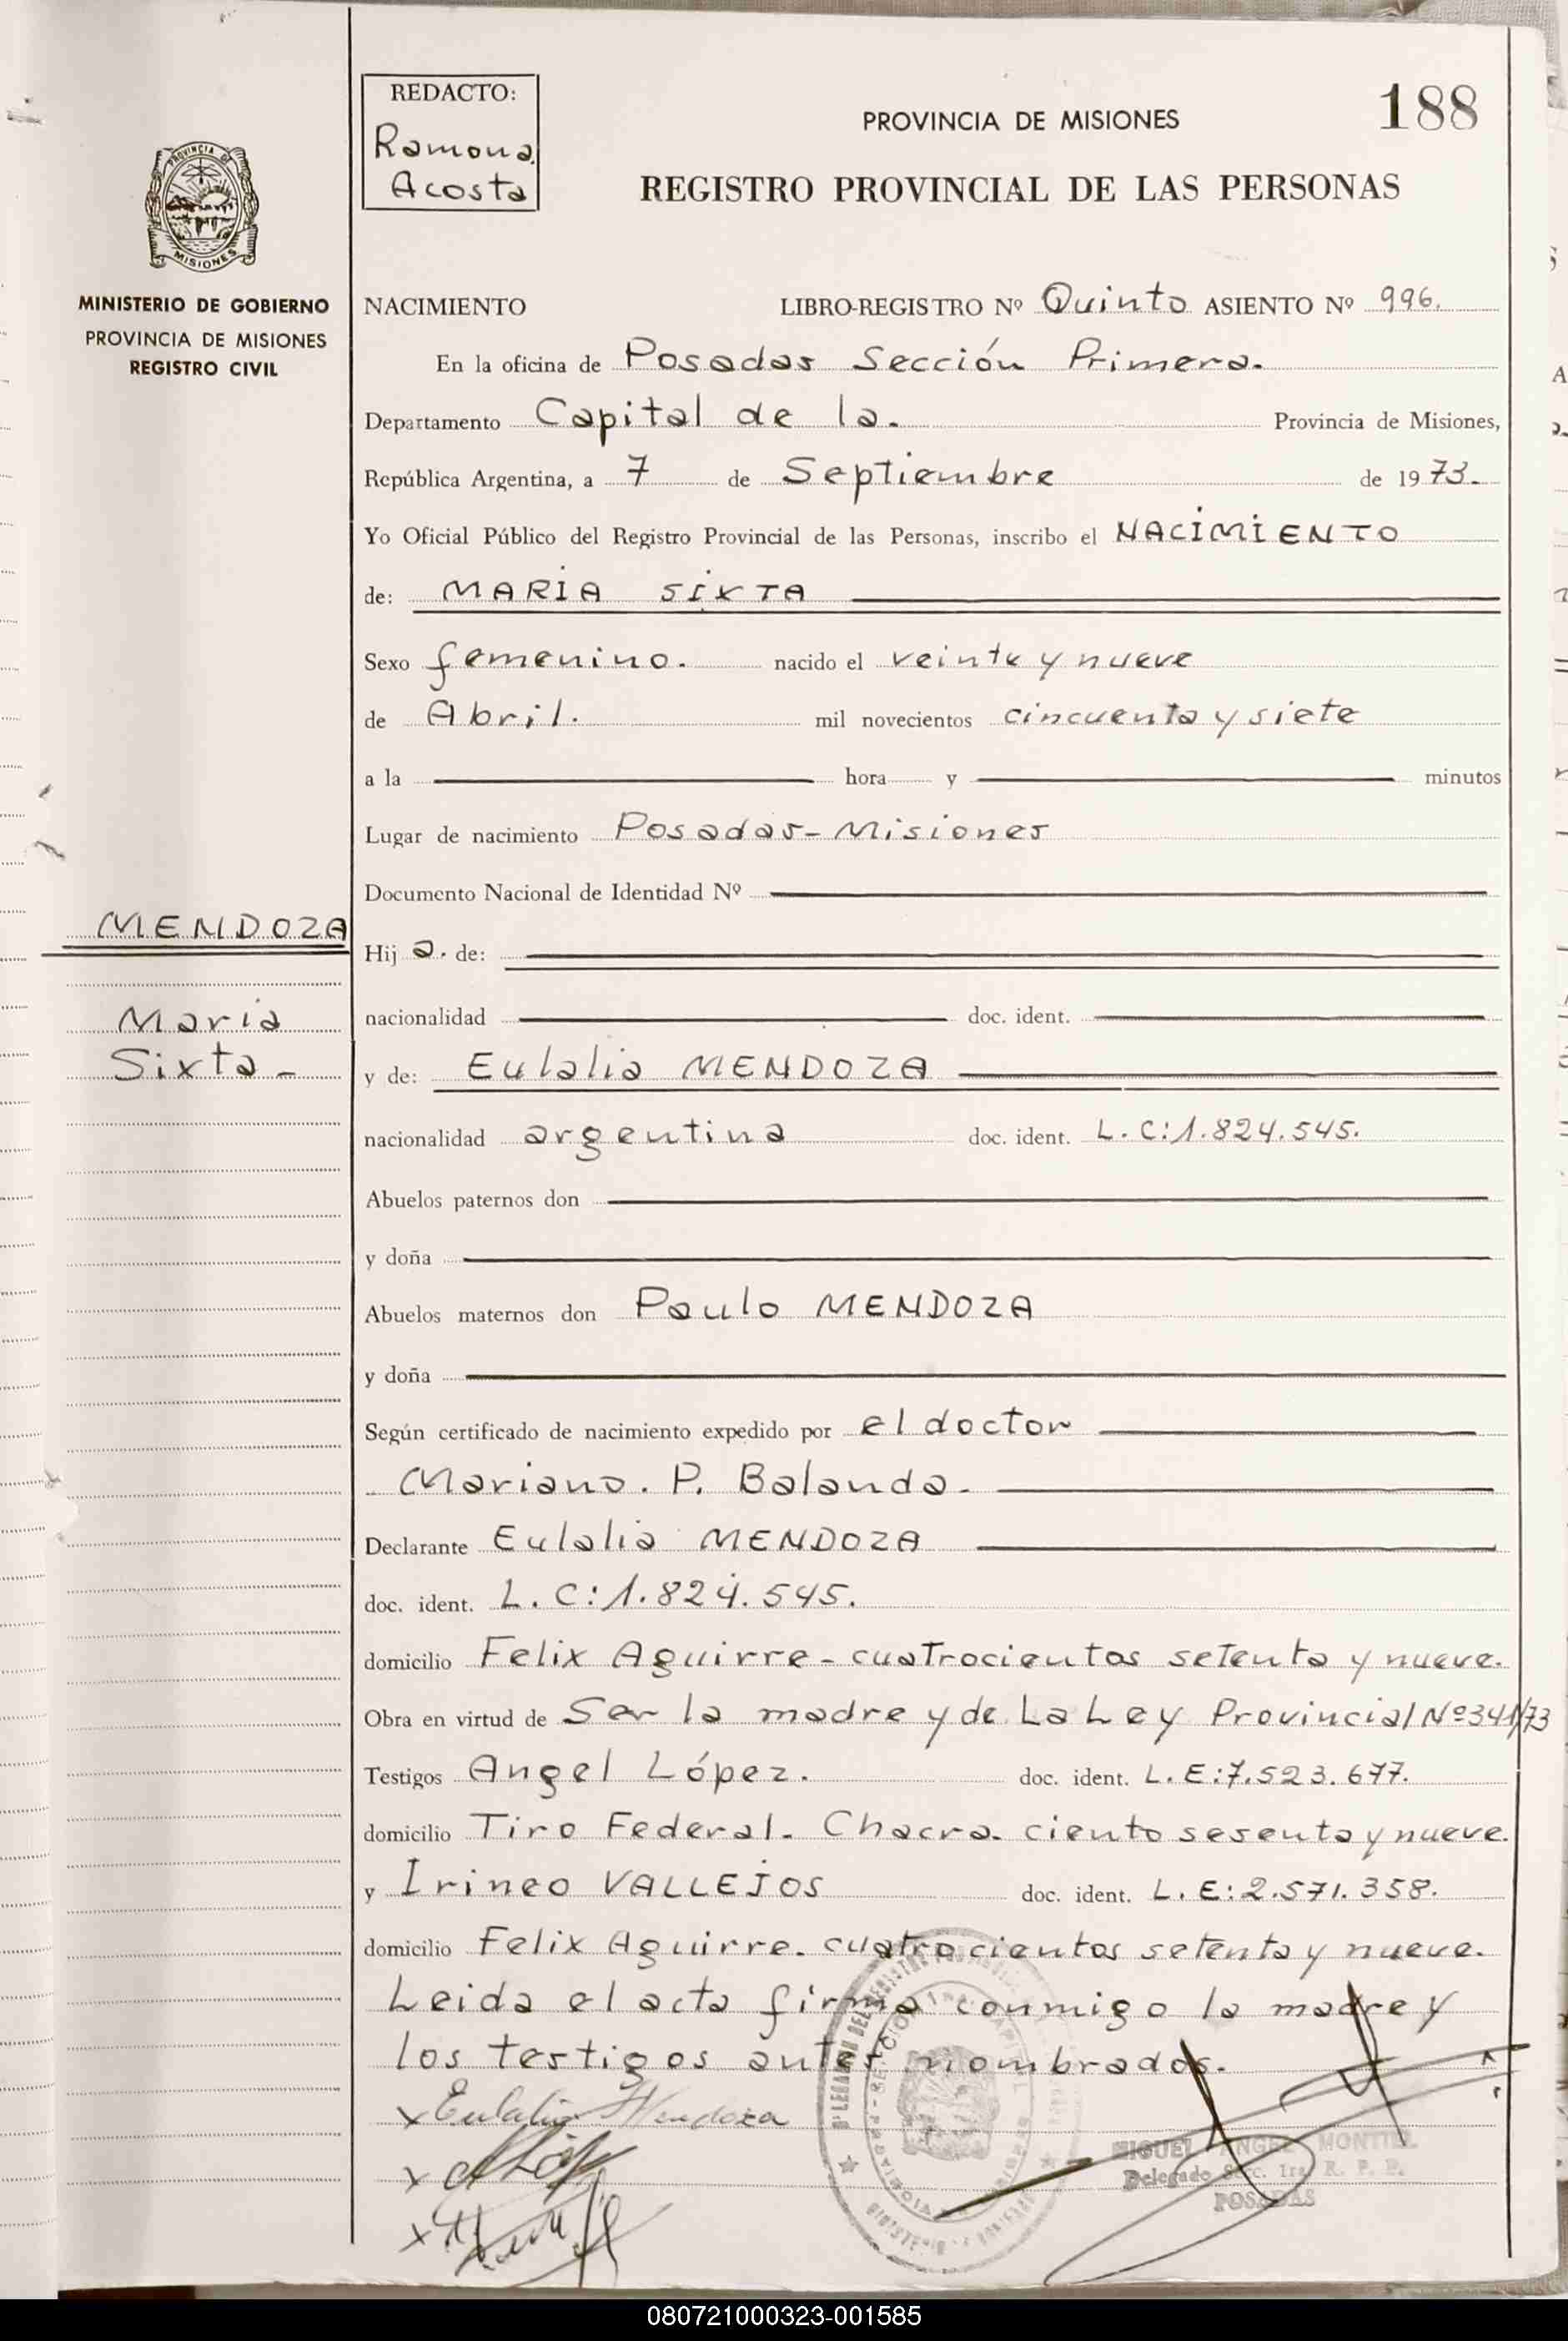 REDACTO:
Ramona
Acosta
PROVINCIA DE MISIONES
188
REGISTRO PROVINCIAL DE LAS PERSONAS
PROVINCIA DE
MISIONES
MINISTERIO DE GOBIERNO
PROVINCIA DE MISIONES
REGISTRO CIVIL
NACIMIENTO LIBRO-REGISTRO Nº Quinto ASIENTO Nº 996.
En la oficina de Posadas Sección Primera.
Departamento Capital de la. Provincia de Misiones,
República Argentina, a 7 de Septiembre de 1973.
Yo Oficial Público del Registro Provincial de las Personas, inscribo el NACIMIENTO
de: MARIA SIXTA
Sexo femenino. nacido el veinte y nueve
de Abril. mil novecientos cincuenta y siete
a la hora y minutos
Lugar de nacimiento Posadas - Misiones
Documento Nacional de Identidad Nº
MENDOZA
Hija. de:
Maria
nacionalidad doc. ident.
Sixta -
y de: Eulalia MENDOZA
nacionalidad argentina doc. ident. L. C: 1.824.545.
Abuelos paternos don
y doña
Abuelos maternos don Paulo MENDOZA
y doña
Según certificado de nacimiento expedido por el doctor
Mariano. P. Balanda.
Declarante Eulalia MENDOZA
doc. ident. L. C: 1.824.545.
domicilio Felix Aguirre - cuatrocientos setenta y nueve.
Obra en virtud de Ser la madre y de La Ley Provincial Nº 341/73
Testigos Angel López. doc. ident. L. E: 7.523.677.
domicilio Tiro Federal. Chacra. ciento sesenta y nueve.
y Irineo VALLEJOS doc. ident. L. E: 2.571.358.
domicilio Felix Aguirre. cuatrocientos setenta y nueve.
Leida el acta firma conmigo la madre y
los testigos antes nombrados.
x Eulalia Mendoza
MIGUEL ANGEL MONTIEL
Delegado Secc. 1ra. R. P. P.
POSADAS
080721000323-001585